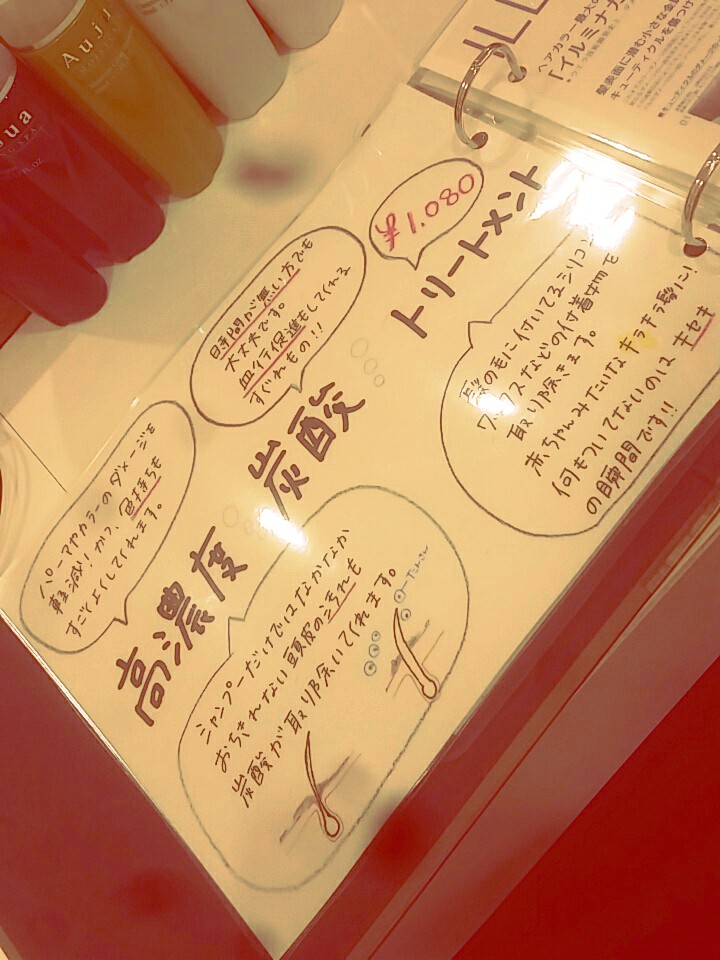 Auju
ua
ヘアカラー最大の
「イルミナカ
髪表面に潜む小さな金
キューティクルを傷つけ
高濃度 炭酸 トリートメント
¥1.080
パーマやカラーのダメージを
軽減!かつ、色持ちも
すごくよくしてくれます。
時間が無い方でも
大丈夫です。
血行促進もしてくれる
すぐれもの!!
シャンプーだけではなかなか
おちきれない頭皮の汚れも
炭酸が取り除いてくれます。
髪の毛に付いてるシリコン
ワックスなどの付着物を
取り除きます。
赤ちゃんみたいなキラキラ髪に!
何もついてないのはキセキ
の瞬間です!!